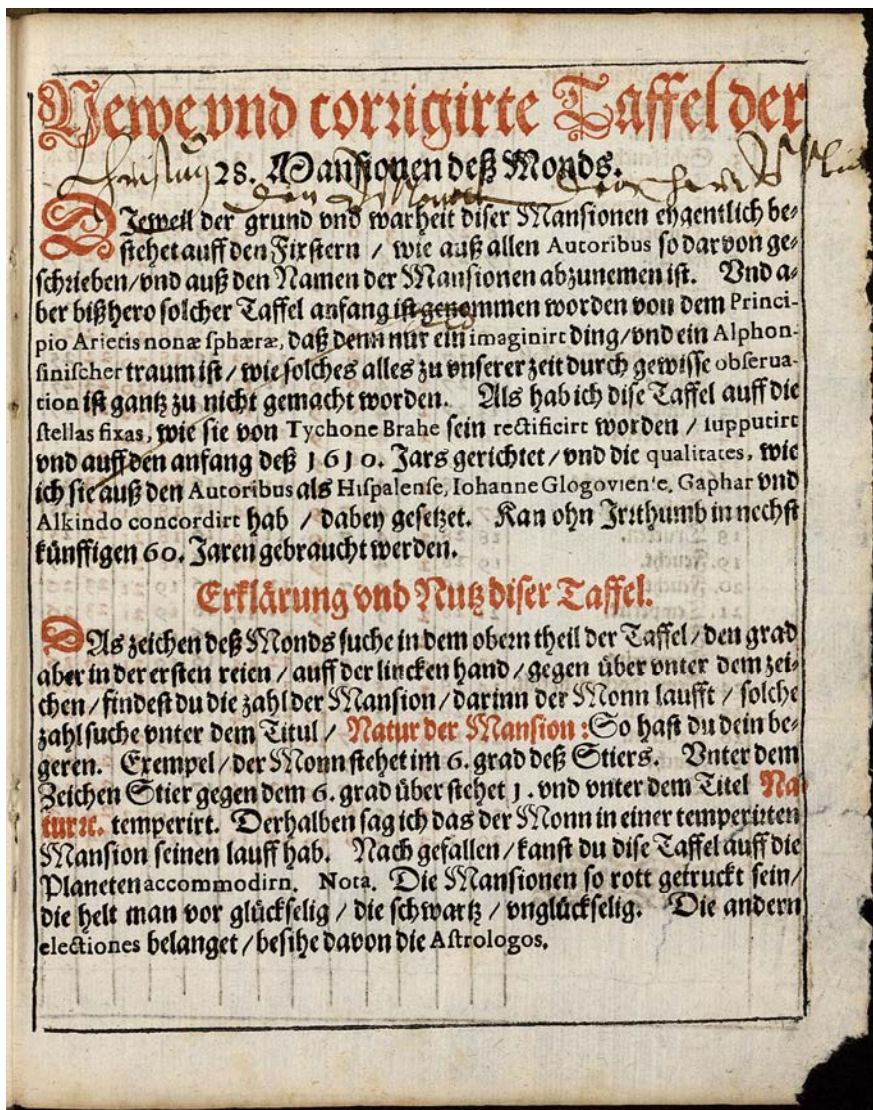 Newe vnd corrigirte Taffel der
28. Mansionen deß Monds.
DJeweil der grund vnd warheit diser Mansionen eygentlich be-
stehet auff den Fixstern / wie auß allen Autoribus so darvon ge-
schrieben / vnd auß den Namen der Mansionen abzunemen ist. Vnd a-
ber bißhero solcher Taffel anfang ist genommen worden von dem Princi-
pio Arietis nonæ sphæræ, daß denn nur ein imaginirt ding / vnd ein Alphon-
sinischer traum ist / wie solches alles zu vnserer zeit durch gewisse obserua-
tion ist gantz zu nicht gemacht worden. Als hab ich dise Taffel auff die
stellas fixas, wie sie von Tychone Brahe sein rectificirt worden / supputirt
vnd auff den anfang deß 1610. Jars gerichtet / vnd die qualitates, wie
ich sie auß den Autoribus als Hispalense, Iohanne Glogoviense, Gaphar vnd
Alkindo concordirt hab / dabey gesetzet. Kan ohn Jrrthumb in nechst
künffigen 60. Jaren gebraucht werden.
Erklärung vnd Nutz diser Taffel.
DAs zeichen deß Monds suche in dem obern theil der Taffel / den grad
aber in der ersten reien / auff der lincken hand / gegen über vnter dem zei-
chen / findest du die zahl der Mansion / darinn der Monn laufft / solche
zahl suche vnter dem Titul / Natur der Mansion : So hast du dein be-
geren. Exempel / der Monn stehet im 6. grad deß Stiers. Vnter dem
Zeichen Stier gegen dem 6. grad über stehet 1. vnd vnter dem Titel Na-
tur ꝛc. temperirt. Derhalben sag ich das der Monn in einer temperirten
Mansion seinen lauff hab. Nach gefallen / kanst du dise Taffel auff die
Planeten accommodirn. Nota. Die Mansionen so rott getruckt sein /
die helt man vor glückselig / die schwartz / vnglückselig. Die andern
electiones belanget / besihe davon die Astrologos.